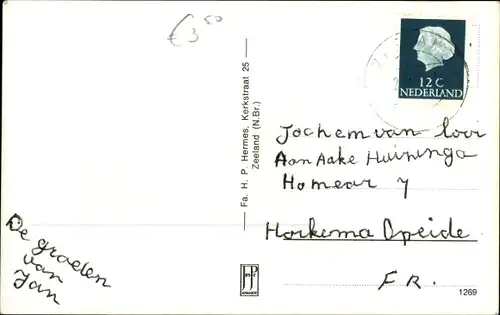 € 3,50
12 C
NEDERLAND
Fa. H. P. Hermes, Kerkstraat 25
Zeeland (N.Br.)
Jochem van Looi
Aan Aake Huizinga
Homear 7
Horkema Opeide
FR.
De groeten
van
Jan
1269